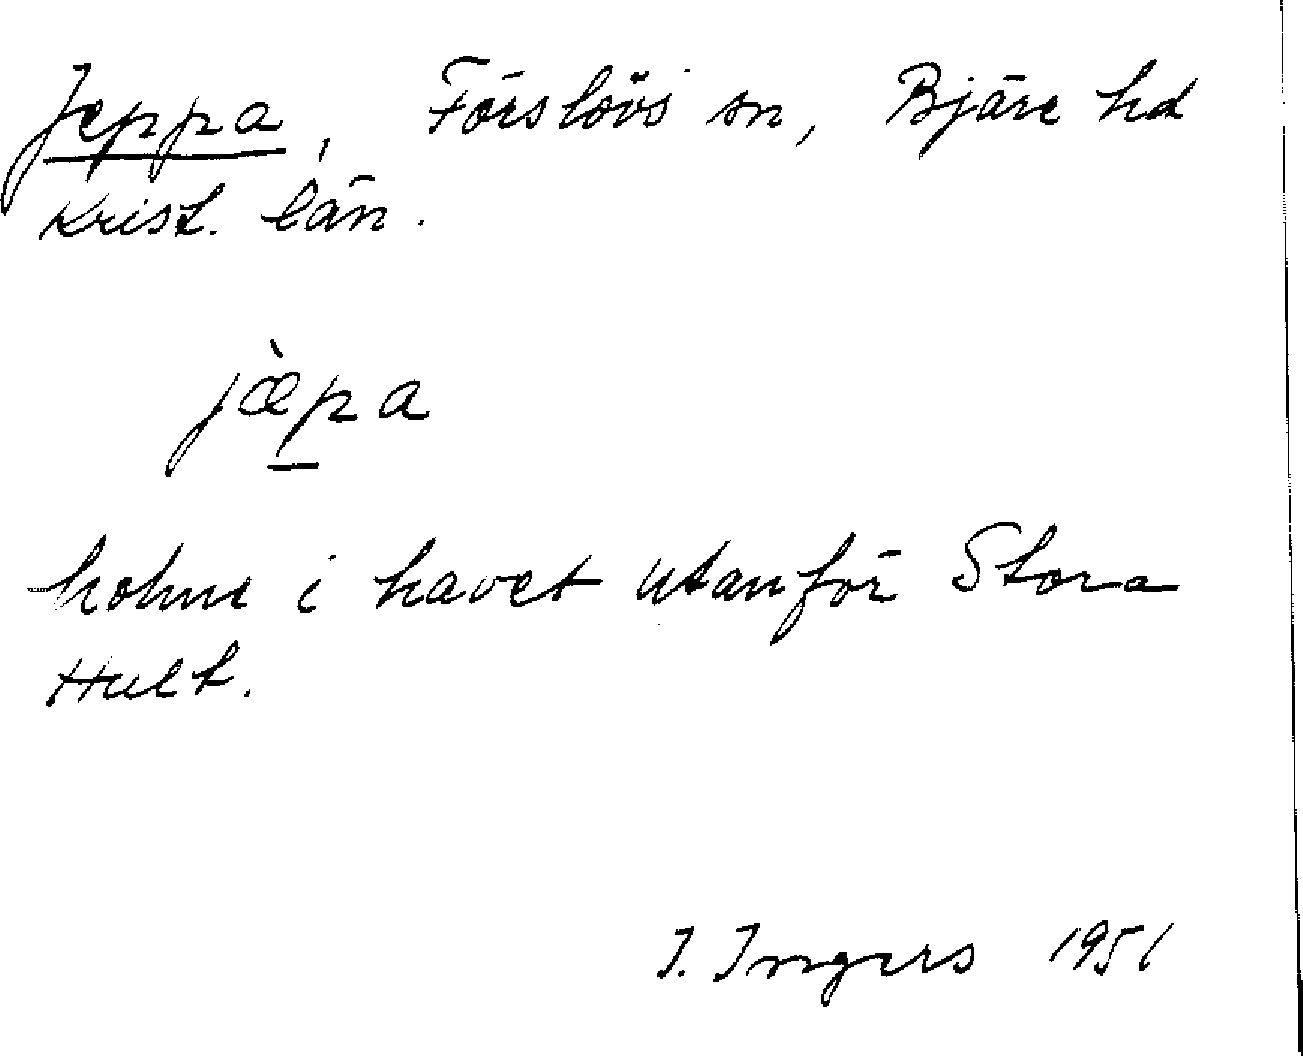 Jeppa, Förslövs sn, Bjäre hd
Krist. län.
jæ̀p̲a
holme i havet utanför Stora
Hult.
I. Ingers 1951